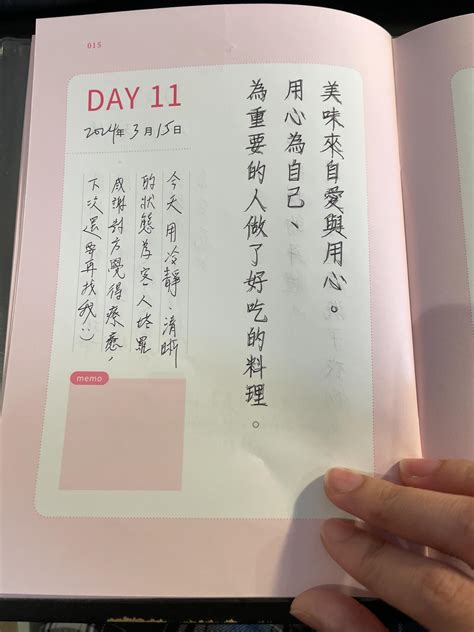 015
DAY 11
2024年3月15日
美味來自愛與用心。
用心為自己、
為重要的人做了好吃的料理。
今天用冷靜、清晰
的狀態為客人塔羅
感謝對方覺得療癒,
下次還要再找我:)
memo